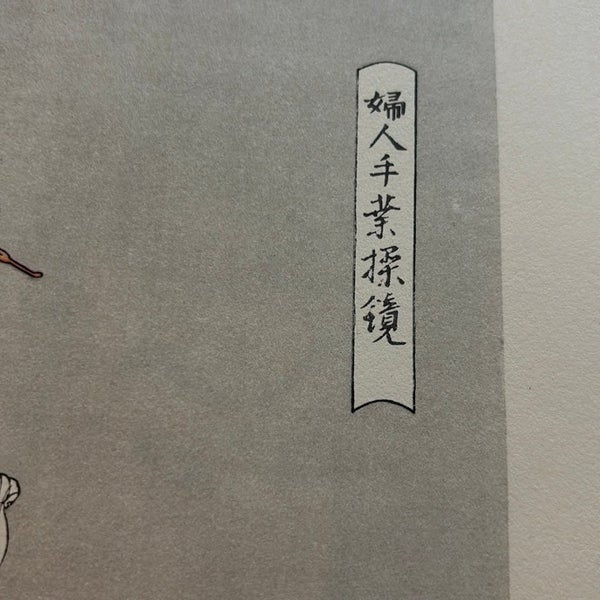 婦人手業操鏡